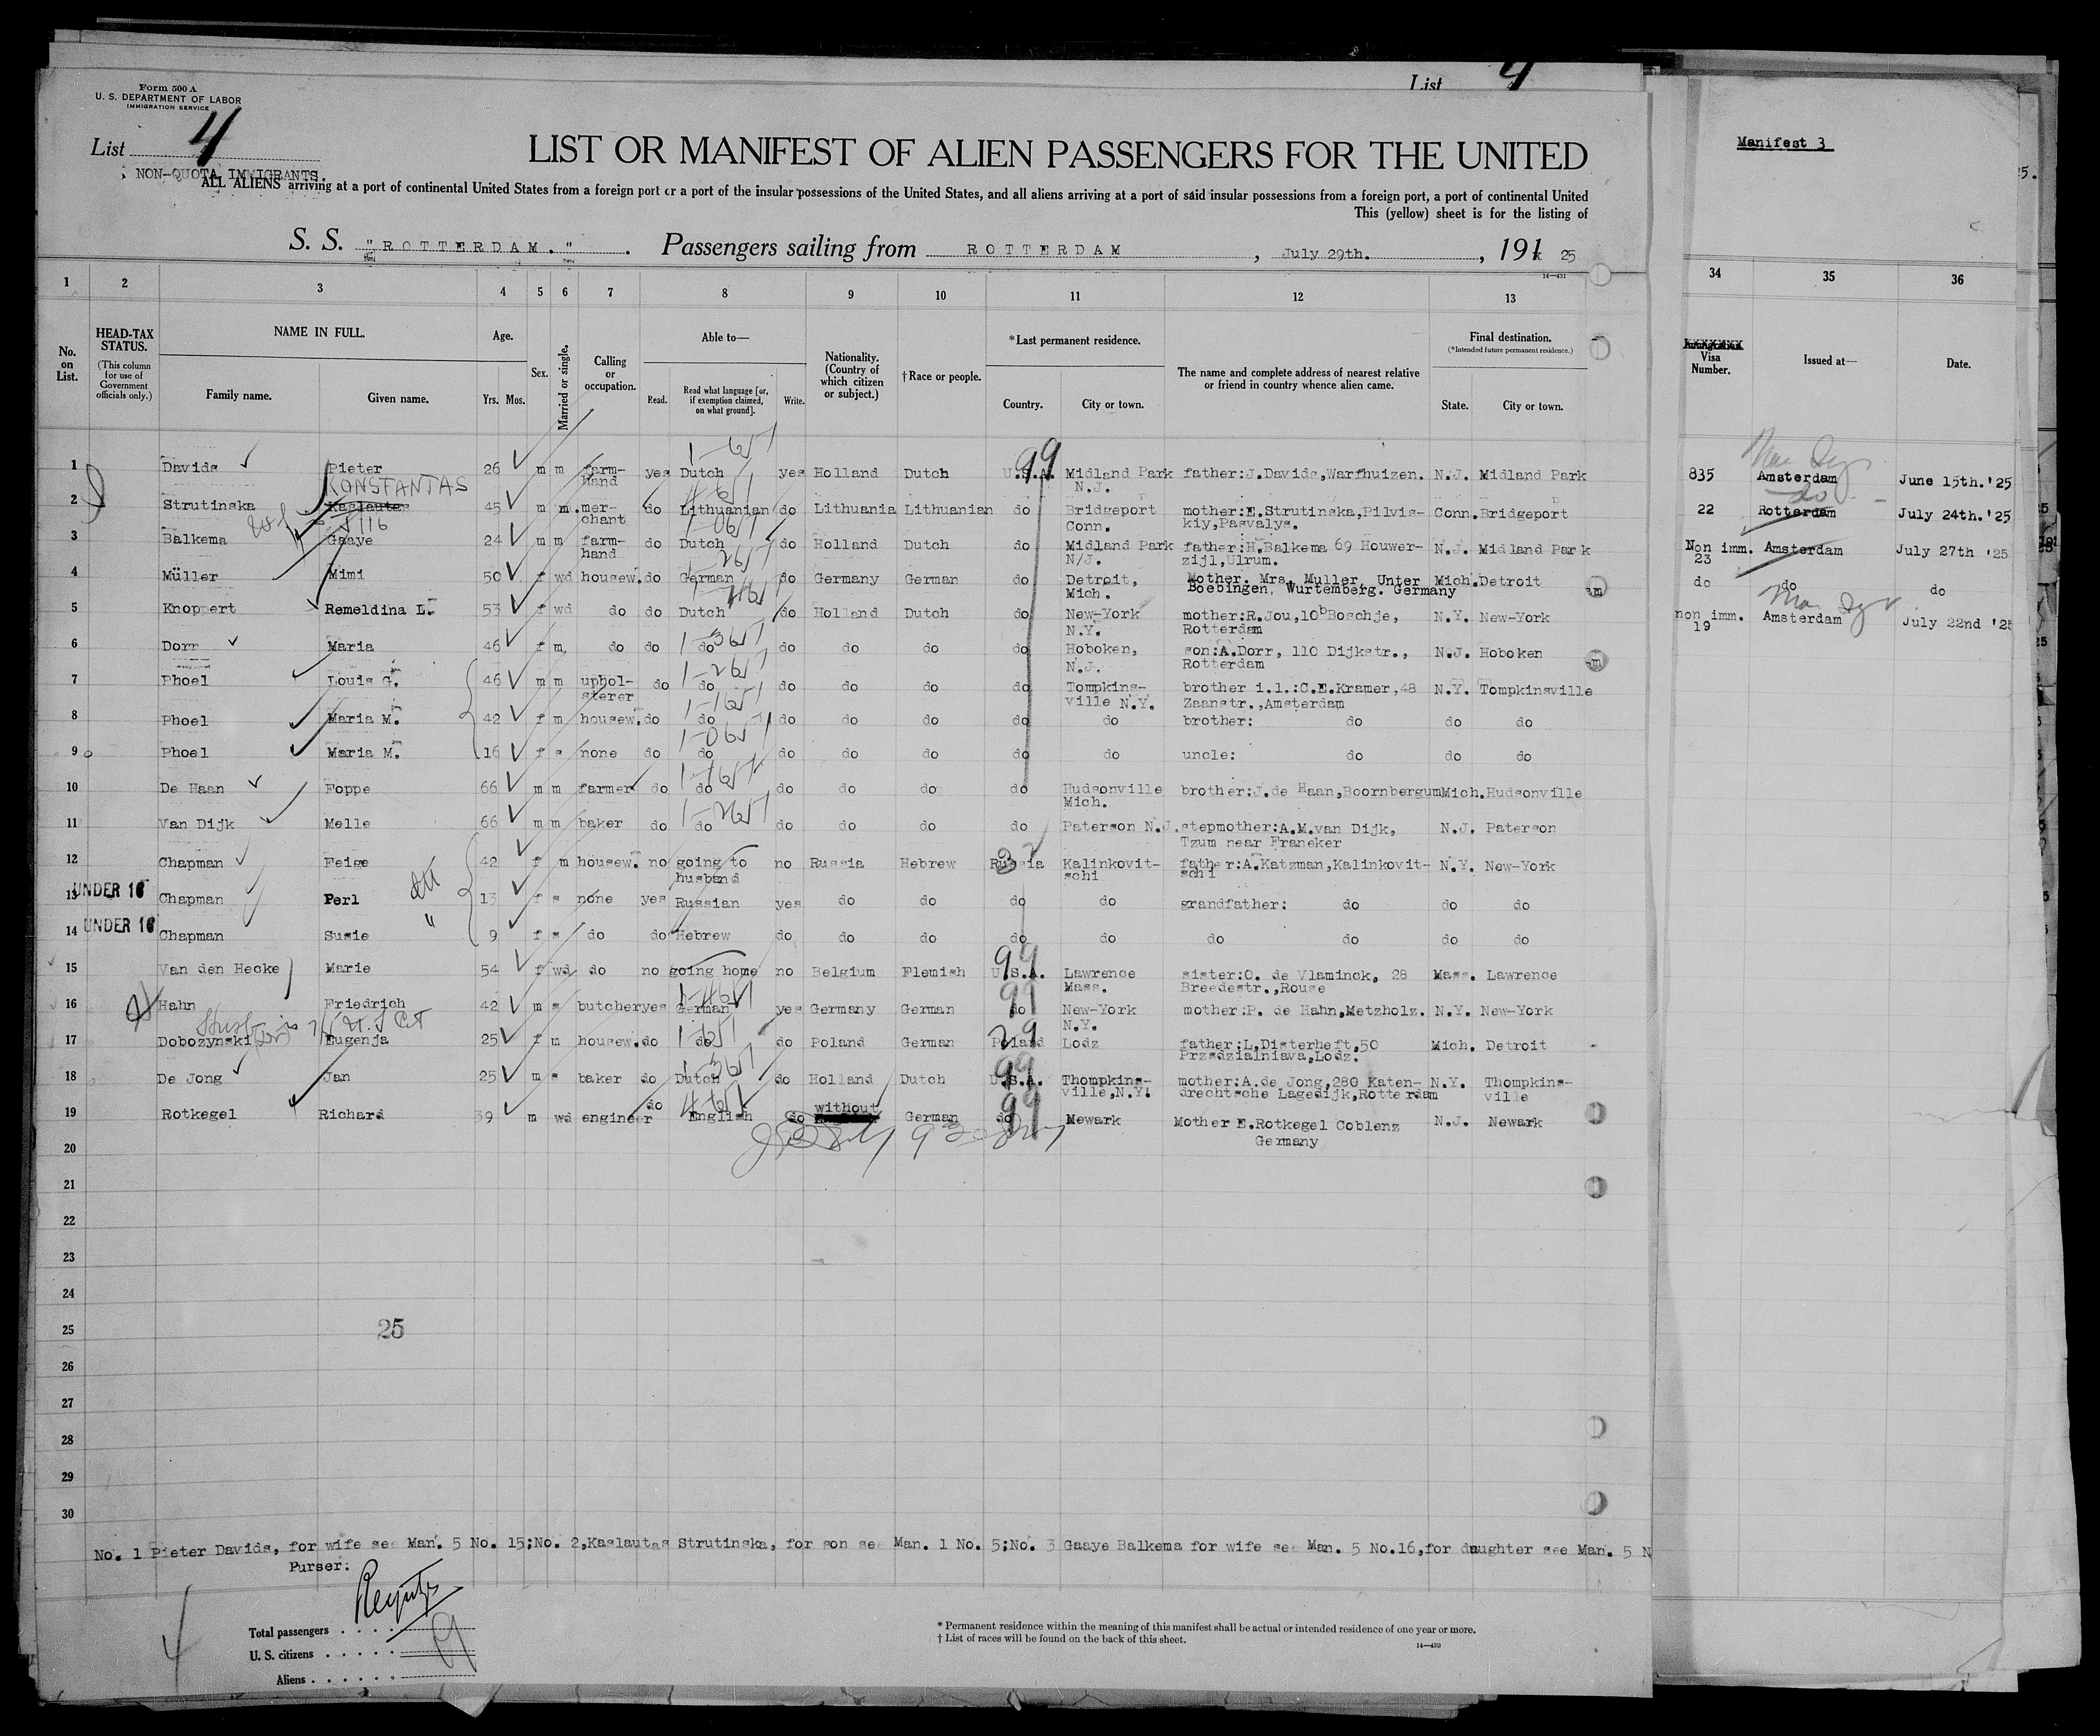 List 4
Form 500 A
U. S. DEPARTMENT OF LABOR
IMMIGRATION SERVICE
List 4
NON-QUOTA IMMIGRANTS.
LIST OR MANIFEST OF ALIEN PASSENGERS FOR THE UNITED
ALL ALIENS arriving at a port of continental United States from a foreign port or a port of the insular possessions of the United States, and all aliens arriving at a port of said insular possessions from a foreign port, a port of continental United
This (yellow) sheet is for the listing of
S. S. "ROTTERDAM." Passengers sailing from ROTTERDAM, July 29th., 191 25
14—431
1 2 3 4 5 6 7 8 9 10 11 12 13
No. on List.
HEAD-TAX STATUS.
(This column for use of Government officials only.)
NAME IN FULL.
Family name. Given name.
Age.
Yrs. Mos.
Sex.
Married or single.
Calling or occupation.
Able to—
Read. Read what language [or, if exemption claimed, on what ground]. Write.
Nationality. (Country of which citizen or subject.)
†Race or people.
*Last permanent residence.
Country. City or town.
The name and complete address of nearest relative or friend in country whence alien came.
Final destination.
(*Intended future permanent residence.)
State. City or town.
1 Davids Pieter 26 m m farm-hand yes Dutch yes Holland Dutch U.S.A. Midland Park N.J. father:J.Davids,Warfhuizen. N.J. Midland Park
KONSTANTAS
2 Strutinska Kaslautas 45 m m mer-chant do Lithuanian do Lithuania Lithuanian do Bridgeport Conn. mother:E.Strutinska,Pilvis-kiy,Pasvalys. Conn. Bridgeport
3 Balkema Gaaye 24 m m farm-hand do Dutch do Holland Dutch do Midland Park N/J. father:H.Balkema 69 Houwer-zijl,Ulrum. N.J. Midland Park
4 Müller Mimi 50 f wd housew. do German do Germany German do Detroit, Mich. Mother. Mrs. Muller Unter Boebingen, Wurtemberg. Germany Mich. Detroit
5 Knoppert Remeldina L. 53 f wd do do Dutch do Holland Dutch do New-York N.Y. mother:R.Jou,10b Boschje, Rotterdam N.Y. New-York
6 Dorr Maria 46 f m do do do do do do do Hoboken, N.J. son:A.Dorr, 110 Dijkstr., Rotterdam N.J. Hoboken
7 Phoel Louis G. 46 m m uphol-sterer do do do do do do Tompkins-ville N.Y. brother i.l.:C.E.Kramer,48 Zaanstr.,Amsterdam N.Y. Tompkinsville
8 Phoel Maria M. 42 f m housew. do do do do do do do brother: do do do
9 Phoel Maria M. 16 f s none do do do do do do do uncle: do do do
10 De Haan Foppe 66 m m farmer do do do do do do Hudsonville Mich. brother:J.de Haan,Boornbergum Mich. Hudsonville
11 Van Dijk Melle 66 m m baker do do do do do do Paterson N.J. stepmother:A.M.van Dijk, Tzum near Franeker N.J. Paterson
12 Chapman Feige 42 f m housew. no going to husband no Russia Hebrew Russia Kalinkovit-schi father:A.Katzman,Kalinkovit-schi N.Y. New-York
UNDER 16
13 Chapman Perl 13 f s none yes Russian yes do do do do grandfather: do do do
UNDER 16
14 Chapman Susie 9 f s do do Hebrew do do do do do do do do do
15 Van den Hecke Marie 54 f wd do no going home no Belgium Flemish U.S.A. Lawrence Mass. sister:O. de Vlaminck, 28 Breedestr.,Rouse Mass. Lawrence
16 Hahn Friedrich 42 m s butcher yes German yes Germany German do New-York N.Y. mother:P. de Hahn,Metzholz. N.Y. New-York
17 Dobozynski Eugenja 25 f m housew. do do do Poland German Poland Lodz father:L.Disterheft,50 Przedzialniava,Lodz. Mich. Detroit
18 De Jong Jan 25 m s baker do Dutch do Holland Dutch U.S.A. Thompkins-ville,N.Y. mother:A.de Jong,280 Katen-drechtsche Lagedijk,Rotterdam N.Y. Thompkins-ville
19 Rotkegel Richard 39 m wd engineer do English do without German do Newark Mother E.Rotkegel Coblenz Germany N.J. Newark
20
21
22
23
24
25 25
26
27
28
29
30
No. 1 Pieter Davids, for wife see Man. 5 No. 15;No. 2,Kaslautas Strutinska, for son see Man. 1 No. 5;No. 3 Gaaye Balkema for wife see Man. 5 No.16,for daughter see Man. 5 N
Purser:
Total passengers
U. S. citizens
Aliens
19
4
* Permanent residence within the meaning of this manifest shall be actual or intended residence of one year or more.
† List of races will be found on the back of this sheet.
14—430
Manifest 3
34 35 36
Visa Number. Issued at— Date.
835 Amsterdam June 15th.'25
22 Rotterdam July 24th.'25
Non imm. 23 Amsterdam July 27th '25
do do do
non imm. 19 Amsterdam July 22nd '25